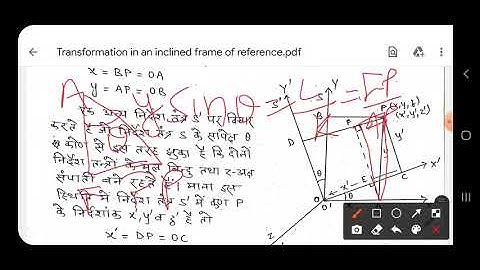 Transformation in an inclined frame of reference.pdf
x = BP = OA
y = AP = OB
एक अन्य निर्देश तंत्र S' पर विचार
करते हैं जो निर्देश तंत्र S के सापेक्ष θ
कोण से इस तरह झुका है कि दोनों
निर्देश तन्त्रों के मूल बिन्दु तथा z-अक्ष
संपाती बने रहते हैं। माना इस
स्थिति में निर्देश तंत्र S' में P
के निर्देशांक x', y' व z' हैं तो
x' = DP = OC
y sin θ
= EP
S' Y' S Y
B P
(x,y,z)
(x',y',z')
D
θ
y'
E
C X'
x'
O
O'
θ
Z